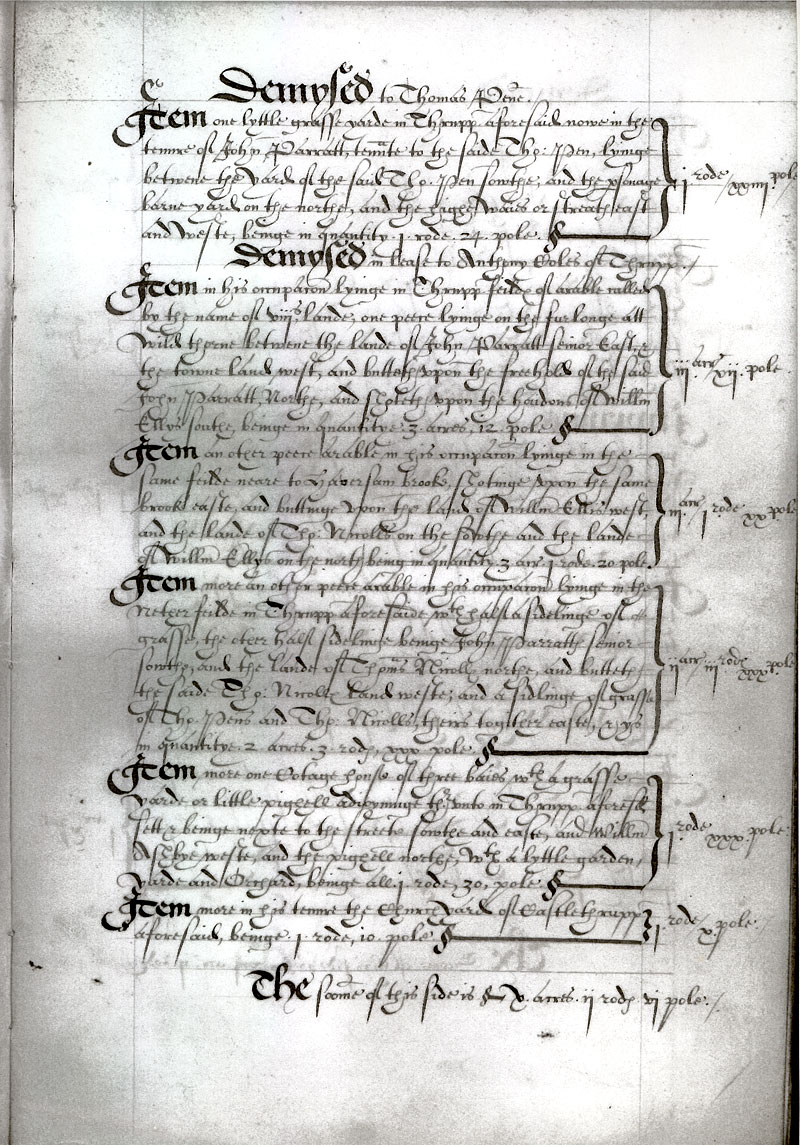 Demysed to Thomas Pene.
Item one lyttle grasse yarde in Thrupp aforesaid nowe in the
tenure of John Parratt, tennte to the saide Tho: Pen, lyinge
betwene the yard of the said Tho. Pen sowthe, and the psonage
barne yard on the northe, and the highe waies or streath east
and weste, beinge in quantity. 1. rode. 24. pole.
j rode xxiiij pole
Demysed in lease to Anthony Coles of Thrupp./
Item in his occupacon lyinge in Thrupp feilde of arable called
by the name of viijs lande, one peece lyinge on the furlonge att
Wild thorne betwene the lande of John Parratt senior East &
the towne land west, and butteth vpon the freehold of the said
John Parratt Northe, and shoteth vpon the hadons of Willm
Ellys southe, beinge in quantitye 3 acres, 12 pole
iij acr xij pole
Item an other peece arable in his occupacon lyinge in the
same feilde neare to Haversam brook, shotinge vpon the same
brook easte, and buttinge vpon the land of Willm Ellis west,
and the lande of Tho: Nicolls on the sowthe and the lande
of Willm Ellys on the north being in quantity 3 acr 1 rode 20 pole.
iij acr j rode xx pole
Item more an other peece arable in his occupacon lyinge in the
Nether feilde in Thrupp aforesaide wth half a sidelinge of
grasse, the other half sidelinge beinge John Parratts senior
sowth, and the lande of Thoms Nicolls northe, and butteth
the saide Tho: Nicolls land weste, and a sidlinge of grasse
of Tho. Pens and Tho: Nicolls, theirs together easte,
in quantitye 2 acres. 3 rod, xxx pole
ij acr iij rod xxx pole
Item more one Cotage house of three baies wth a grasse
yarde or little pighell adioyninge thervnto in Thrupp aforesd
sett & beinge nexte to the streete sowthe and easte, and Willm
Ashbye weste, and the pighell northe, wth a lyttle garden,
yarde and Orchard, beinge all 1 rode, 30, pole
j rode xxx pole
Item more in his tenure the Church yard of Castlethrupp
aforesaid, beinge. 1 rode, 10. pole
j rode x pole
The somme of this side is x. acres. ij rod vj pole./